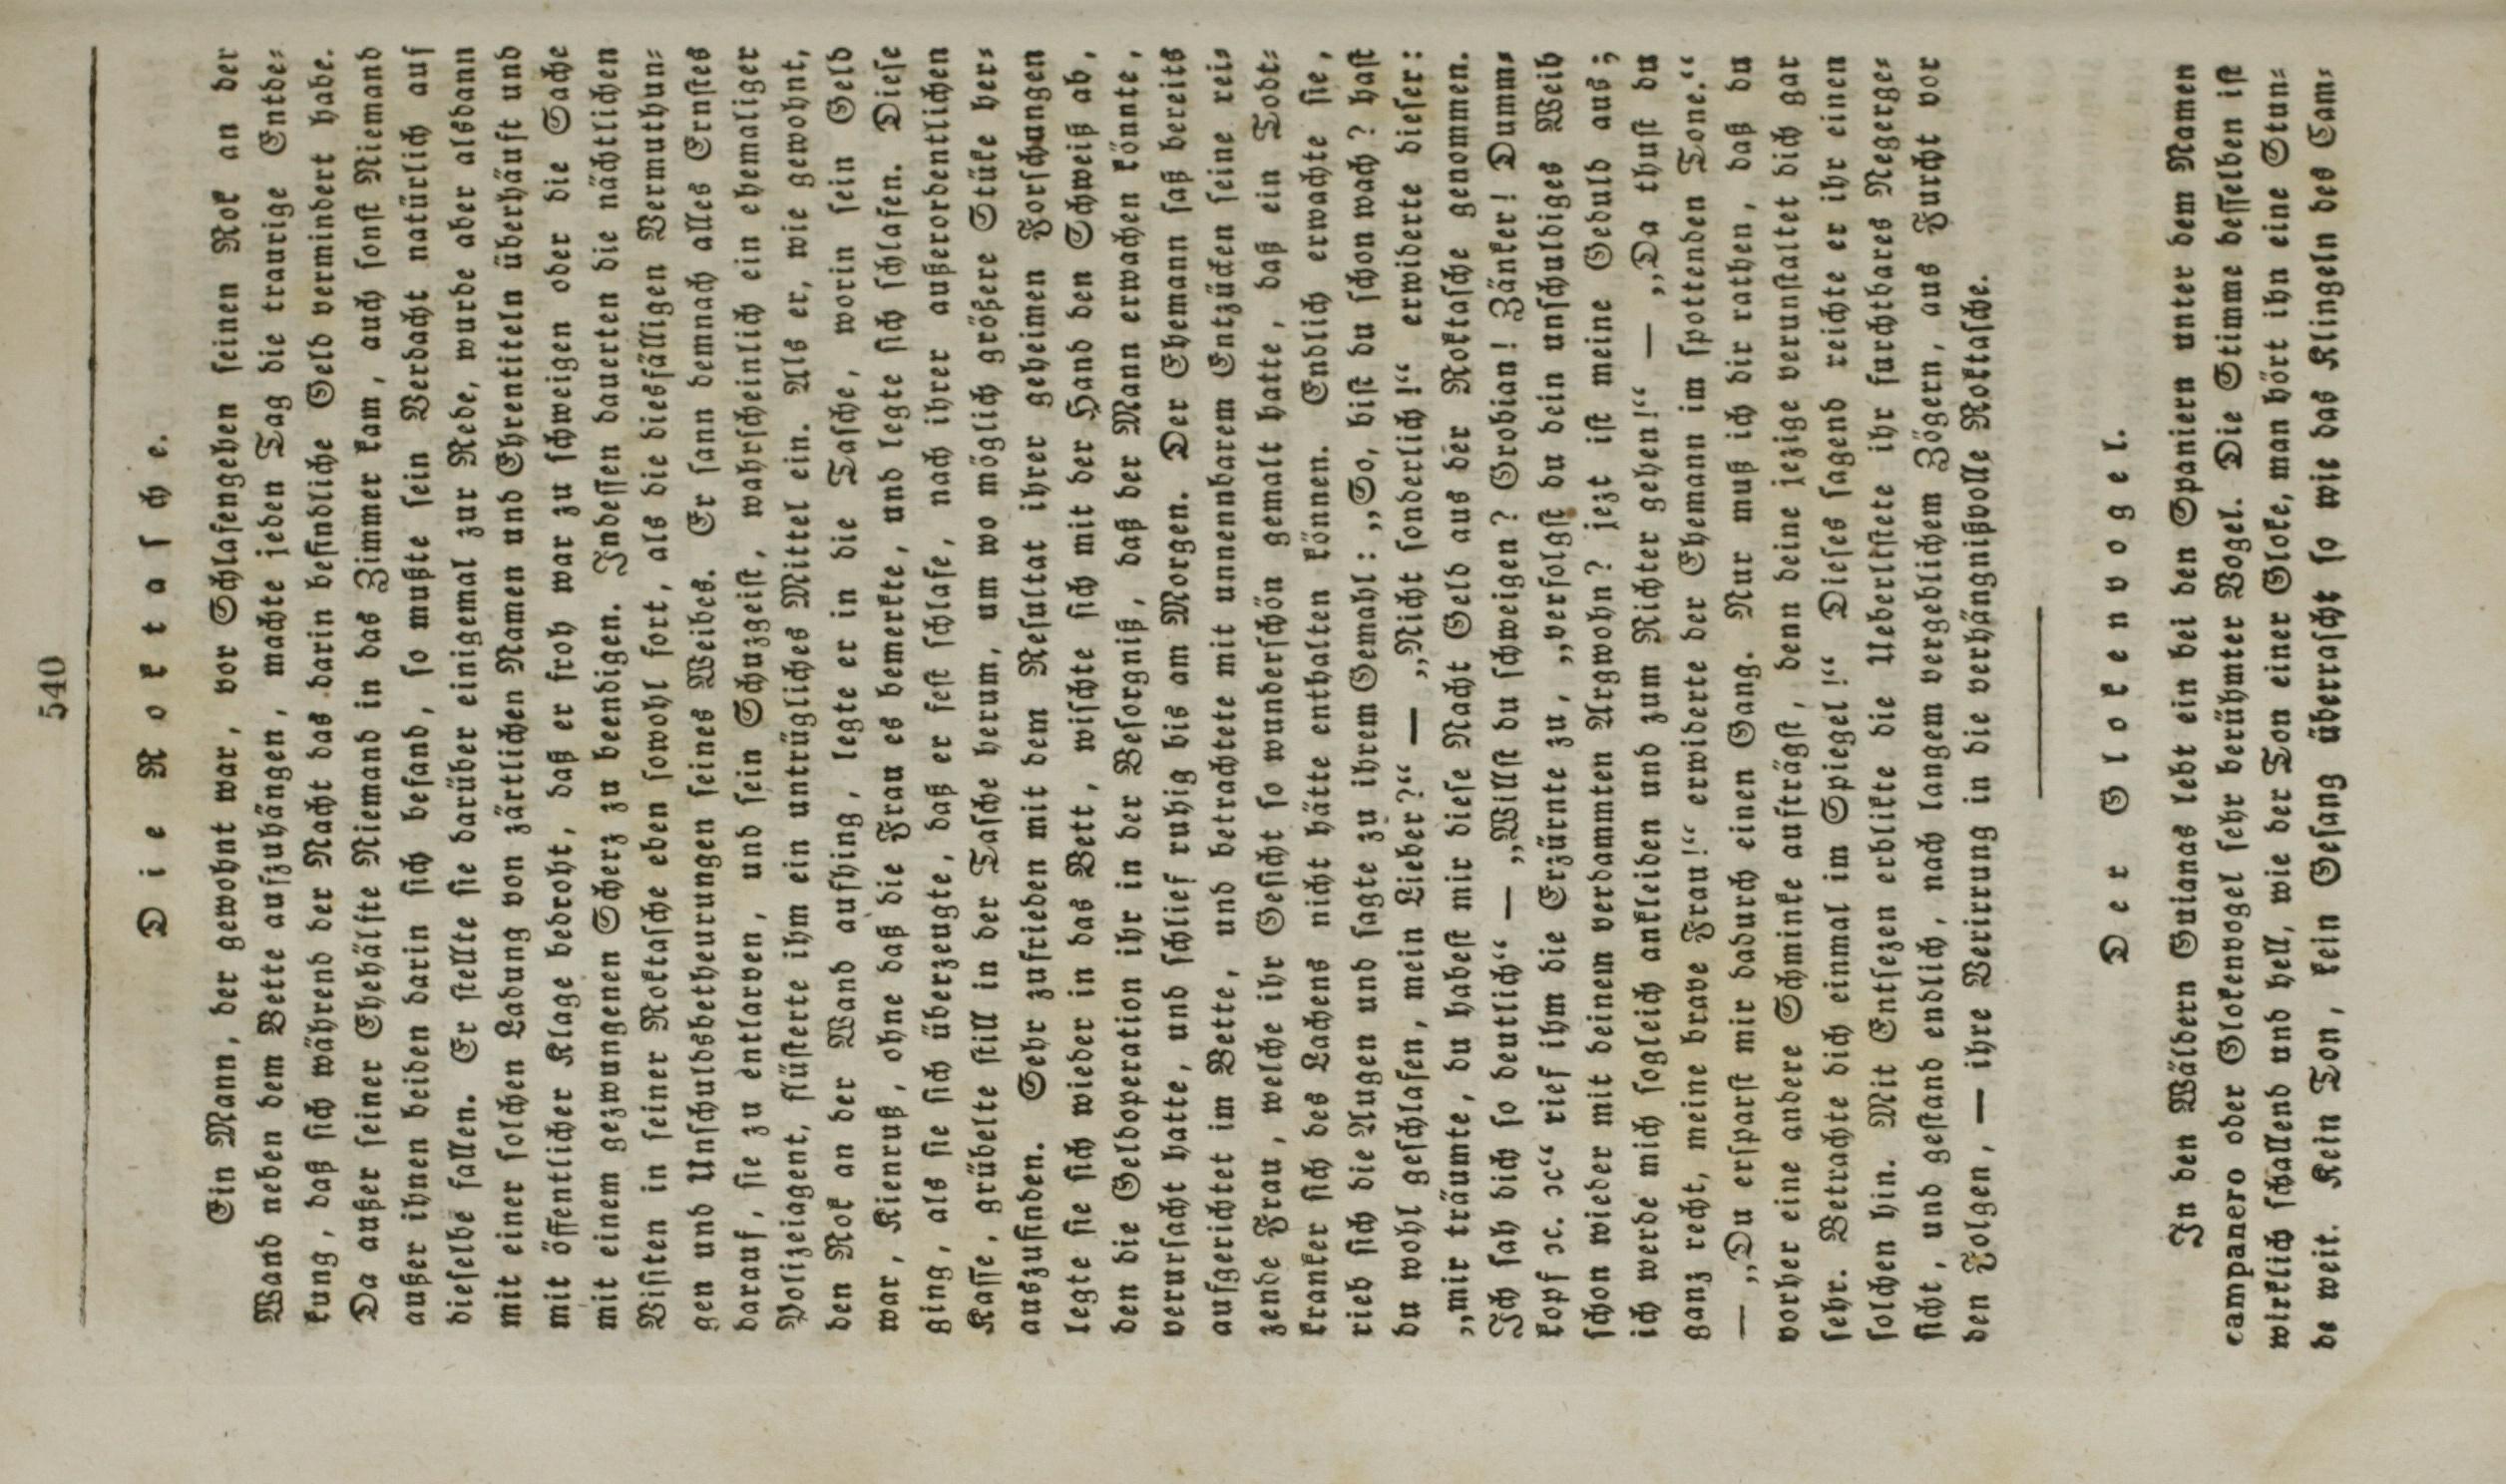 540
Die Roktasche.
Ein Mann, der gewohnt war, vor Schlafengehen seinen Rok an der
Wand neben dem Bette aufzuhängen, machte jeden Tag die traurige Entde-
kung, daß sich während der Nacht das darin befindliche Geld vermindert habe.
Da außer seiner Ehehälfte Niemand in das Zimmer kam, auch sonst Niemand
außer ihnen beiden darin sich befand, so mußte sein Verdacht natürlich auf
dieselbe fallen. Er stellte sie darüber einigemal zur Rede, wurde aber alsdann
mit einer solchen Ladung von zärtlichen Namen und Ehrentiteln überhäuft und
mit öffentlicher Klage bedroht, daß er froh war zu schweigen oder die Sache
mit einem gezwungenen Scherz zu beendigen. Indessen dauerten die nächtlichen
Visiten in seiner Roktasche eben sowohl fort, als die diesfälligen Vermuthun-
gen und Unschuldsbetheurungen seines Weibes. Er sann demnach alles Ernstes
darauf, sie zu entlarven, und sein Schuzgeist, wahrscheinlich ein ehemaliger
Polizeiagent, flüsterte ihm ein untrügliches Mittel ein. Als er, wie gewohnt,
den Rok an der Wand aufhing, legte er in die Tasche, worin sein Geld
war, Kienruß, ohne daß die Frau es bemerkte, und legte sich schlafen. Diese
ging, als sie sich überzeugte, daß er fest schlafe, nach ihrer außerordentlichen
Kasse, grübelte still in der Tasche herum, um wo möglich größere Stüke her-
auszufinden. Sehr zufrieden mit dem Resultat ihrer geheimen Forschungen
legte sie sich wieder in das Bett, wischte sich mit der Hand den Schweiß ab,
den die Geldoperation ihr in der Besorgniß, daß der Mann erwachen könnte,
verursacht hatte, und schlief ruhig bis am Morgen. Der Ehemann saß bereits
aufgerichtet im Bette, und betrachtete mit unnennbarem Entzücken seine rei-
zende Frau, welche ihr Gesicht so wunderschön gemalt hatte, daß ein Todt-
kranker sich des Lachens nicht hätte enthalten können. Endlich erwachte sie,
rieb sich die Augen und sagte zu ihrem Gemahl: „So, bist du schon wach? hast
du wohl geschlafen, mein Lieber?“ — „Nicht sonderlich!“ erwiderte dieser:
„mir träumte, du habest mir diese Nacht Geld aus der Roktasche genommen.
Ich sah dich so deutlich“ — „Willst du schweigen? Grobian! Zänker! Dumm-
kopf ꝛc. ꝛc“ rief ihm die Erzürnte zu, „verfolgst du dein unschuldiges Weib
schon wieder mit deinem verdammten Argwohn? jezt ist meine Geduld aus;
ich werde mich sogleich ankleiden und zum Richter gehen!“ — „Da thust du
ganz recht, meine brave Frau!“ erwiderte der Ehemann im spottenden Tone.“
— „Du ersparst mir dadurch einen Gang. Nur muß ich dir rathen, daß du
vorher eine andere Schminke aufträgst, denn deine jezige verunstaltet dich gar
sehr. Betrachte dich einmal im Spiegel!“ Dieses sagend reichte er ihr einen
solchen hin. Mit Entsezen erblikte die Ueberlistete ihr furchtbares Negerge-
sicht, und gestand endlich, nach langem vergeblichem Zögern, aus Furcht vor
den Folgen, — ihre Verirrung in die verhängnißvolle Roktasche.
Der Glokenvogel.
In den Wäldern Guianas lebt ein bei den Spaniern unter dem Namen
campanero oder Glokenvogel sehr berühmter Vogel. Die Stimme desselben ist
wirklich schallend und hell, wie der Ton einer Gloke, man hört ihn eine Stun-
de weit. Kein Ton, kein Gesang überrascht so wie das Klingeln des Cam-